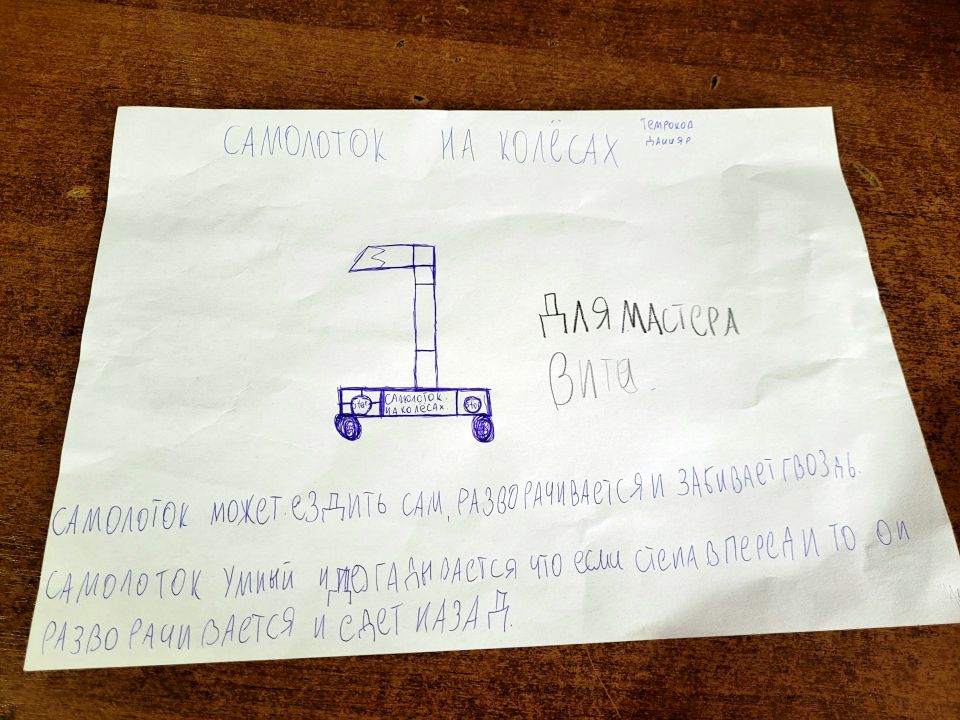 САМОЛОТОК НА КОЛЁСАХ
Темроков
Данияр.
ДЛЯ МАСТЕРА
Вита.
САМОЛОТОК.
НА КОЛЕСАХ.
САМОЛОТОК МОЖЕТ ЕЗДИТЬ САМ, РАЗВОРАЧИВАЕТСЯ И ЗАБИВАЕТ ГВОЗДЬ.
САМОЛОТОК УМНЫЙ И ДОГАДЫВАЕТСЯ ЧТО ЕСЛИ СТЕНА ВПЕРЕДИ ТО ОН
РАЗВОРАЧИВАЕТСЯ И ЕДЕТ НАЗАД.